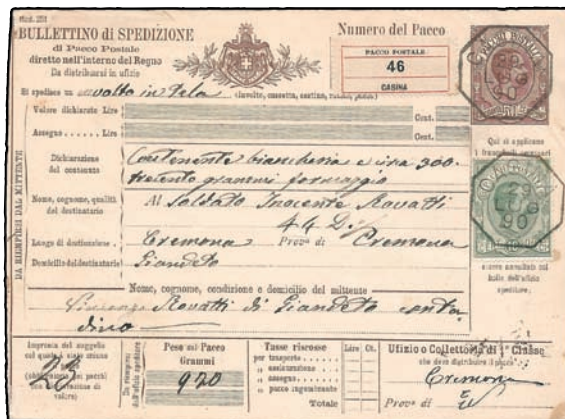 Mod. 251
BULLETTINO di SPEDIZIONE
di Pacco Postale
diretto nell'interno del Regno
Da distribuirsi in ufizio
Numero del Pacco
PACCO POSTALE
46
CASINA
Si spedisce un involto in tela (involto, cassetta, cestino,
Valore dichiarato Lire Cent.
Assegno Lire Cent.
Dichiarazione del contenuto Contenente biancheria e circa 300-
trecento grammi formaggio
Nome, cognome, qualità del destinatario Al Soldato Inocente Rovatti
44
Luogo di destinazione Cremona Prov.a di Cremona
Domicilio del destinatario Giandeto
DA RIEMPIRSI DAL MITTENTE
Nome, cognome, condizione e domicilio del mittente
Rovatti di Giandeto conta
dino
Qui si applicano
i francobolli
29
90
29
90
bollo dell'ufizio
speditore.
Impronta del suggello
23
Da riempirsi
dall'ufizio speditore
Peso del Pacco
Grammi
920
Tasse riscosse Lire Ct.
per trasporto
" assicurazione
" assegno
" pacco ingombrante
Totale
Ufizio o Collettoria di 1ª Classe
che deve distribuire il pacco
Cremona
Prov.a di